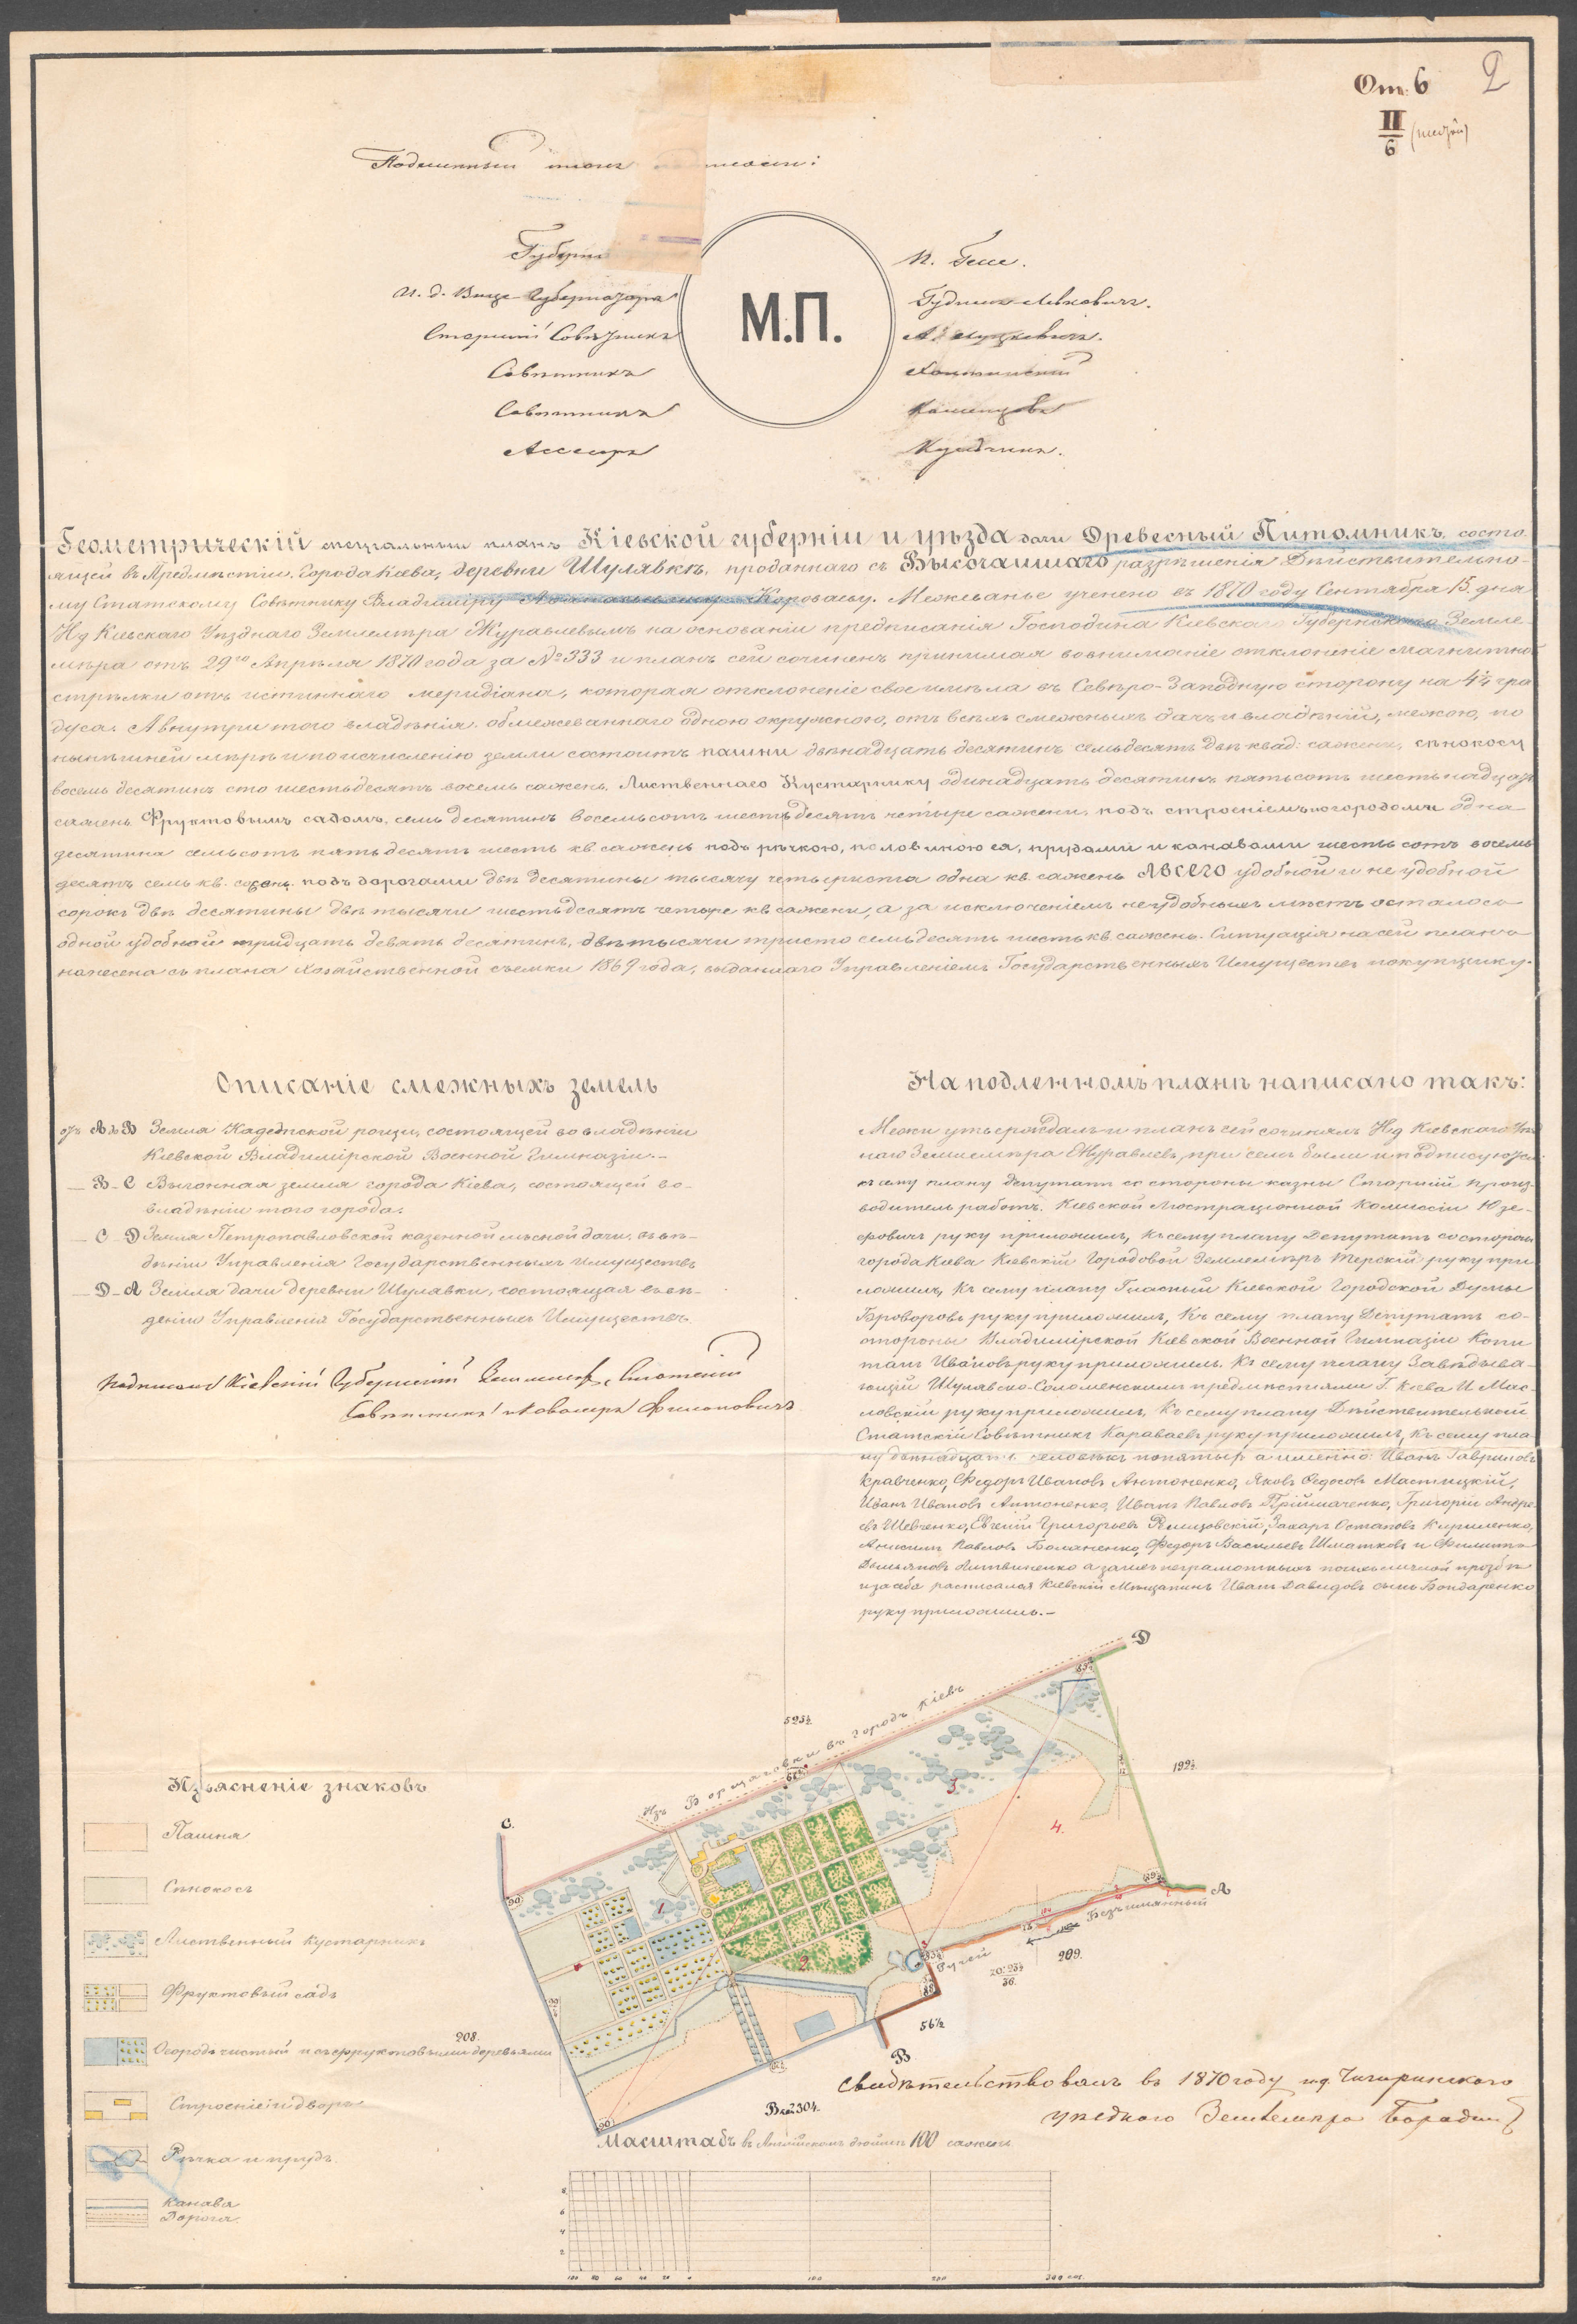 От. 6 2
II
6
Подлинный планъ
Губерн
М. Гессе.
И. д. Вице-Губернатора
Старшій Совѣтникъ
Совѣтникъ
Совѣтникъ
М.П.
Геометрическій спеціальный планъ Кіевской губерніи и уѣзда дачи Древесный Питомникъ, состо-
ящей въ Предмѣстіи города Кіева, деревни Шулявкѣ, проданнаго съ Высочайшаго разрѣшенія Дѣйствительно-
му Статскому Совѣтнику Владиміру Короваеву. Межеванье учинено въ 1870 году Сентября 15 дня
И д Кіевскаго Уѣзднаго Землемѣра Журавлевымъ на основаніи предписанія Господина Кіевскаго Губернскаго Земле-
мѣра отъ 29го Апрѣля 1870 года за № 333 и планъ сей сочиненъ принимая во вниманіе отклоненіе магнитной
стрѣлки отъ истиннаго меридіана, которая отклоненіе свое имѣла въ Сѣверо-Западную сторону на 4¼ гра
дуса. А внутри того владѣнія обмежеваннаго одною окружною, отъ всѣхъ смежныхъ дачъ и владѣній, межою, по
нынѣшней мѣрѣ и по исчисленію земли состоитъ пашни двѣнадцать десятинъ семьдесятъ двѣ квад: сажени, сѣнокосу
восемь десятинъ сто шестьдесятъ восемь сажень, Лиственнаго Кустарнику одинадцать десятинъ пятьсотъ шестьнадцать
сажень Фруктовымъ садомъ, семь десятинъ восемьсотъ шестьдесятъ четыре сажени, подъ строеніемъ и огородомъ одна
десятина семьсотъ пятьдесятъ шесть кв. сажень подъ рѣчкою, половиною ея, прудами и канавами шестьсотъ восемь
десятъ семь кв. сажень, подъ дорогами двѣ десятины тысячу четыриста одна кв. сажень А ВСЕГО удобной и неудобной
сорокъ двѣ десятины двѣ тысячи шестьдесятъ четыре кв сажени, а за исключеніемъ неудобныхъ мѣстъ осталось
одной удобной тридцать девять десятинъ, двѣ тысячи триста семьдесятъ шесть кв. сажень. Ситуація на сей планъ
нанесена съ плана Хозяйственной съемки 1869 года, выданнаго Управленіемъ Государственныхъ Имуществъ покупщику.
Описаніе смежныхъ земель
отъ А до В Земля Кадетской рощи, состоящей во владѣніи
Кіевской Владимірской Военной Гимназіи.
— В - С Выгонная земля города Кіева, состоящей во
владѣніи того города.
— С - D Земля Петропавловской казенной лѣсной дачи, въ вѣ-
дѣніи Управленія Государственныхъ Имуществъ
— D - А Земля дачи деревни Шулявки, состоящая въ вѣ-
деніи Управленія Государственныхъ Имуществъ.
Подписалъ Кіевскій Губернскій Землемѣръ, Статскій
Совѣтникъ и Кавалеръ Филиповичъ
На подленномъ планѣ написано такъ:
Межи утверждалъ и планъ сей сочинялъ И д Кіевскаго Уѣзд
наго Землемѣра Журавлевъ, при семъ были и подписуются:
къ сему плану депутатъ со стороны казны Старшій произ-
водитель работъ Кіевской Люстраціонной Комиссіи Юзе-
фовичъ руку приложилъ, Къ сему плану Депутатъ со стороны
города Кіева Кіевскій Городовой Землемѣръ Терскій руку при
ложилъ, Къ сему плану Гласный Кіевской Городской Думы
Броворовъ руку приложилъ, Къ сему плану Депутатъ со
стороны Владимірской Кіевской Военной Гимназіи Капи
танъ Ивановъ руку приложилъ. Къ сему плану Завѣдыва-
ющій Шулявско-Соломенскими предмѣстіями Г. Кіева И. Мас-
ловскій руку приложилъ, Къ сему плану Дѣйствительный
Статскій Совѣтникъ Караваевъ руку приложилъ, Къ сему пла-
ну двѣнадцать человѣкъ понятыхъ а именно: Иванъ Гавриловъ
Кравченко, Федоръ Ивановъ Антоненко, Яковъ Федосовъ Мастицкій,
Иванъ Ивановъ Антоненко, Иванъ Павловъ Пріймаченко, Григорій Андре
евъ Шевченко, Евгеній Григорьевъ Захаръ Остаповъ Кириленко,
Анисимъ Павловъ Федоръ Васильевъ Шматковъ и Филиппъ
Демьяновъ Литвиненко а за нихъ неграмотныхъ по ихъ личной прозбѣ
и за себя расписался Кіевскій Мѣщанинъ Иванъ Давидовъ сынъ Бондаренко
руку приложилъ.
D
Изъ Борщаговки въ городъ Кіевъ
525½
199½
C.
90
1
2
3
4.
A
Ручей Безъимянный
209.
56½
B
208.
304.
90
Изъясненіе знаковъ
Пашня
Сѣнокосъ
Лиственный Кустарникъ
Фруктовый садъ
Огородъ чистый и съ фруктовыми деревьями
Строеніе и дворъ
Рѣчка и прудъ.
Канава
Дорога.
Свидѣтельствовалъ въ 1870 году и д. Чигиринскаго
уѣзднаго Землемѣра
Масштабъ въ Англійскомъ дюймѣ 100 сажень
8
6
4
2
100 80 60 40 20 0 100 200 300 саж.